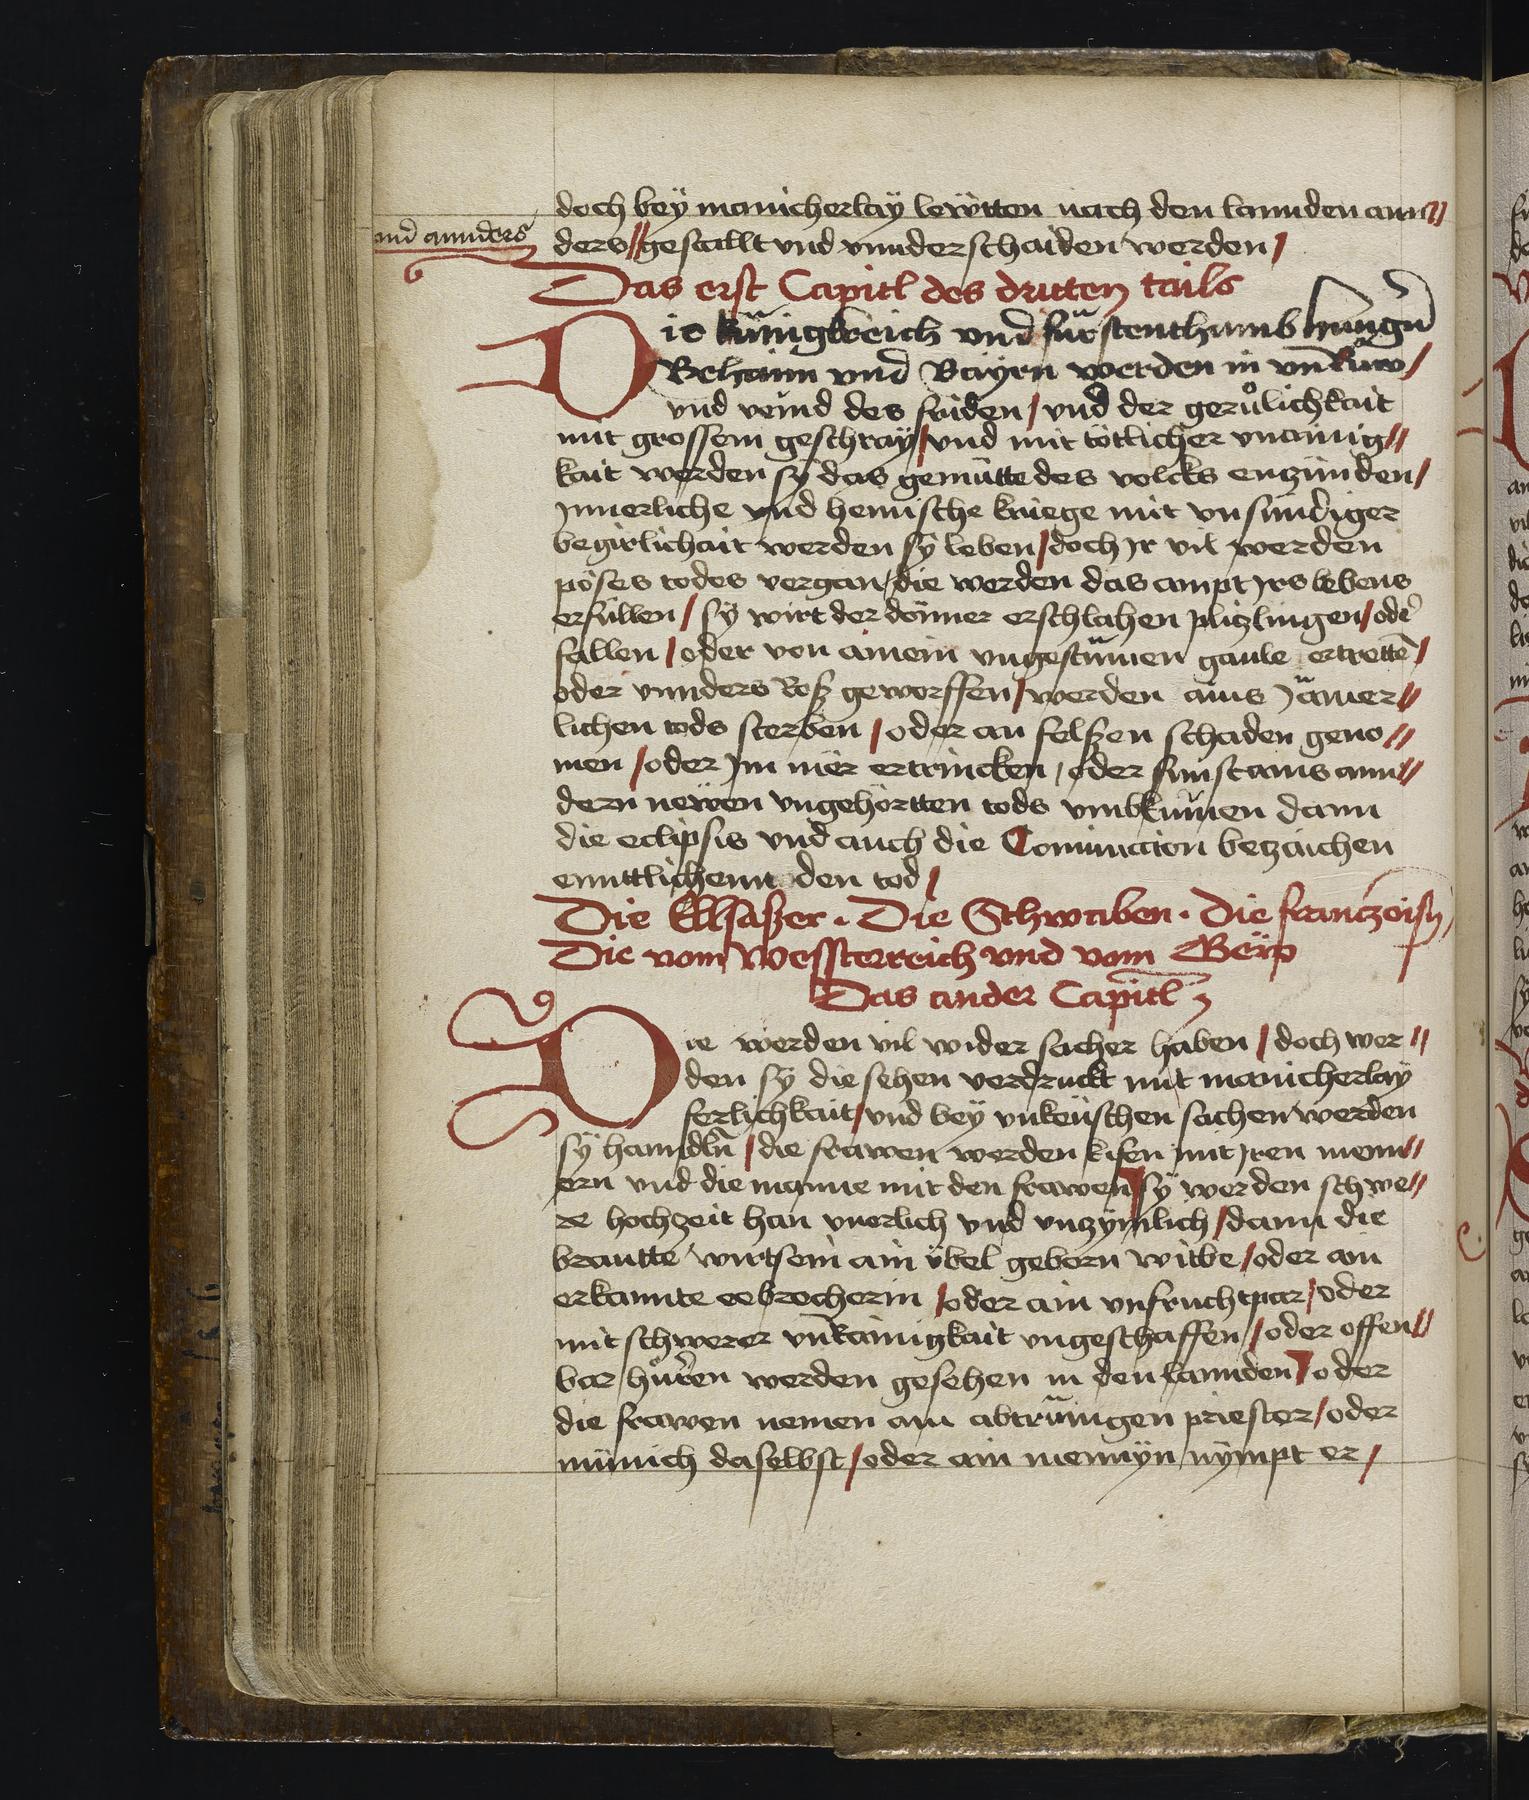 doch bey manicherlay lewtten nach den lannden ann//
und annders
ders // gestallt vnd vnnderschaiden werden /
Das erst Capitl des dritten tails
Die künigkreich vnd fürstenthumb hungern
Behaim vnd Bayrn werden in vnruw /
vnd veind des friden / vnd der gerůlichkait
mit grossem geschray / vnd mit tötlicher vnainig//
kait werden sÿ das gemütte des volcks enzünden /
Jnnerliche vnd hemische kriege mit vnsinndiger
begirlichait werden sÿ leben / doch Jr vil werden
pöses todes vergan / die werden das ampt Jrs lebens
erfüllen / sÿ wirt der donner erschlahen plizlingen / oder
fallen / oder von ainem vngestümen gaule ertretten /
oder vnnders Roß geworffen / werden ains Jämer//
lichen tods sterben / oder an felßen schaden geno//
men / oder Jm mër ertrincken / oder sunst ains ann//
dern newen vngehörtten tods vmbkumen dann
die eclipsis vnd auch die Coniunction betzaichen
enntlichenn den tod /
Die Ellsaßer . Die Schwaben . die franczoisen
Die vom Wessterreich vnd vom
Das ander Capitl
Die werden vil wider sacher haben / doch wer//
den sÿ die sehen verdruckt mit manicherlaÿ
ferlichkait / vnd beÿ vnkeuschen sachen werden
sÿ hanndln / die frawen werden kifen mit Jren menn//
ern vnd die manne mit den frawen / sÿ werden schwe//
re hochzeit han vnerlich vnd vnzymlich / dann die
brautte wirt sein ain übel geborn witbe / oder ain
erkannte eebrecherin / oder ain vnfruchtpar / oder
mit schwerer vnkainigkait vngeschaffen / oder offen//
bar hůren werden gesehen in den lannden / oder
die frawen nemen ain abtrünigen priester / oder
münich daselbst / oder ain mennyn nÿmpt er /